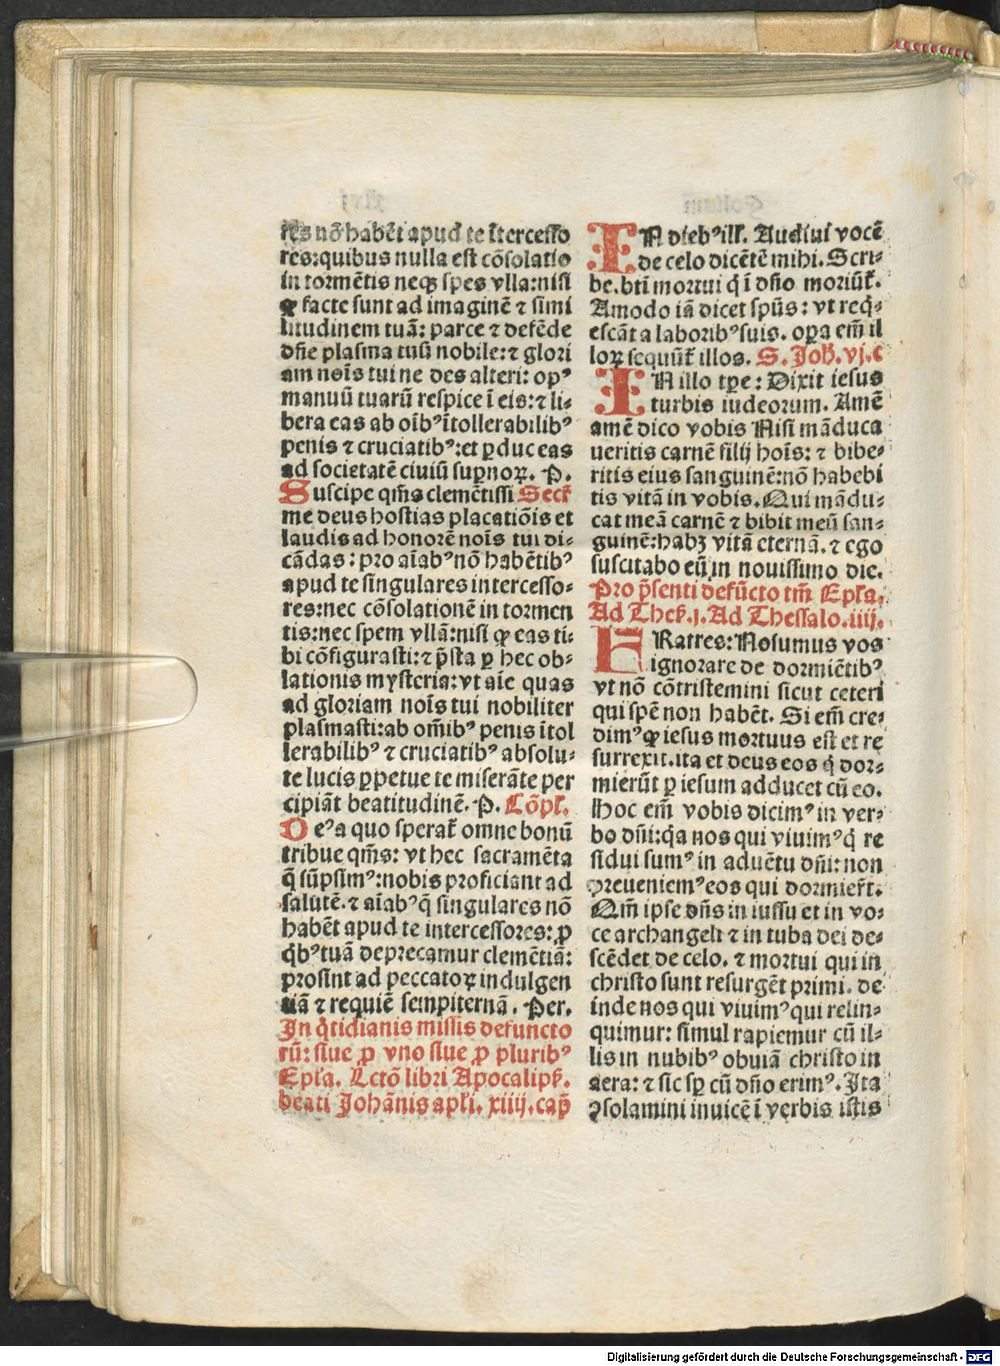 res nō habēt apud te ītercesso
res: quibus nulla est cōsolatio
in tormētis neqꝫ spes vlla: nisi
ꝙ facte sunt ad imaginē ⁊ simi
litudinem tuā: parce ⁊ defēde
dn̄e plasma tuū nobile: ⁊ glori
am noīs tui ne des alteri: opꝰ
manuū tuarū respice ī eis: ⁊ li⸗
bera eas ab oībꝰ ītollerabilibꝰ
penis ⁊ cruciatibꝰ: et ꝑduc eas
ad societatē ciuiū suꝑnoꝝ. P.
Suscipe qm̄s clementissi Secr̄
me deus hostias placatiōis et
laudis ad honorē noīs tui di⸗
cādas: pro aīabꝰ nō habētibꝰ
apud te singulares intercesso⸗
res: nec cōsolationē in tormen
tis: nec spem vllā: nisi ꝙ eas ti⸗
bi cōfigurasti: ⁊ p̄sta ꝑ hec ob⸗
lationis mysteria: vt aīe quas
ad gloriam noīs tui nobiliter
plasmasti: ab om̄ibꝰ penis ītol
lerabilibꝰ ⁊ cruciatibꝰ absolu⸗
te lucis ꝑpetue te miserāte per
cipiāt beatitudinē. P. Cōpl̄.
Deꝰ a quo sperat̄ omne bonū
tribue qm̄s: vt hec sacramēta
q̄ sūpsimꝰ: nobis proficiant ad
salutē. ⁊ aīabꝰ q̄ singulares nō
habēt apud te intercessores: ꝓ
qͥbꝰ tuā deprecamur clemētiā:
prosint ad peccatoꝝ indulgen
tiā ⁊ requiē sempiternā. Per.
In qͦtidianis missis defuncto
rū: siue ꝓ vno siue ꝓ pluribꝰ
Epl̄a. Lctō libri Apocalipẜ.
beati Johānis apl̄i. xiiij. cap̄
IN diebꝰ ill̄. Audiui vocē
de celo dicētē mihi. Scri⸗
be. btī mortui qͥ ī dn̄o moriūt̄.
Amodo iā dicet spūs: vt req̄⸗
escāt a laboribꝰ suis. oꝑa em̄ il
loꝝ sequūt̄ illos. S. Joh̄. vj. c
IN illo tꝑe: Dixit iesus
turbis iudeorum. Amē
amē dico vobis Nisi māduca
ueritis carnē filij hoīs: ⁊ bibe⸗
ritis eius sanguinē: nō habebi
tis vitā in vobis. Qui mādu⸗
cat meā carnē ⁊ bibit meū san⸗
guinē: habꝫ vitā eternā. ⁊ ego
suscitabo eū in nouissimo die.
Pro p̄senti defūcto tm̄ Epl̄a.
Ad Theẜ. j. Ad Thessalo. iiij.
FRatres: Nosumus vos
ignorare de dormiētibꝰ
vt nō cōtristemini sicut ceteri
qui spē non habēt. Si em̄ cre⸗
dimꝰ ꝙ iesus mortuus est et re
surrexit. ita et deus eos qͥ dor⸗
mierūt ꝑ iesum adducet cū eo.
Hoc em̄ vobis dicimꝰ in ver⸗
bo dn̄i: qa nos qui viuimꝰ qͥ re
sidui sumꝰ in aduētu dn̄i: non
preueniemꝰ eos qui dormier̄t.
Qm̄ ipse dn̄s in iussu et in vo⸗
ce archangeli ⁊ in tuba dei de⸗
scēdet de celo. ⁊ mortui qui in
christo sunt resurgēt primi. de
inde nos qui viuimꝰ qui relin⸗
quimur: simul rapiemur cū il⸗
lis in nubibꝰ obuiā christo in
aera: ⁊ sic sꝑ cū dn̄o erimꝰ. Ita
ꝯsolamini inuicē ī verbis istis
Digitalisierung gefördert durch die Deutsche Forschungsgemeinschaft - DFG